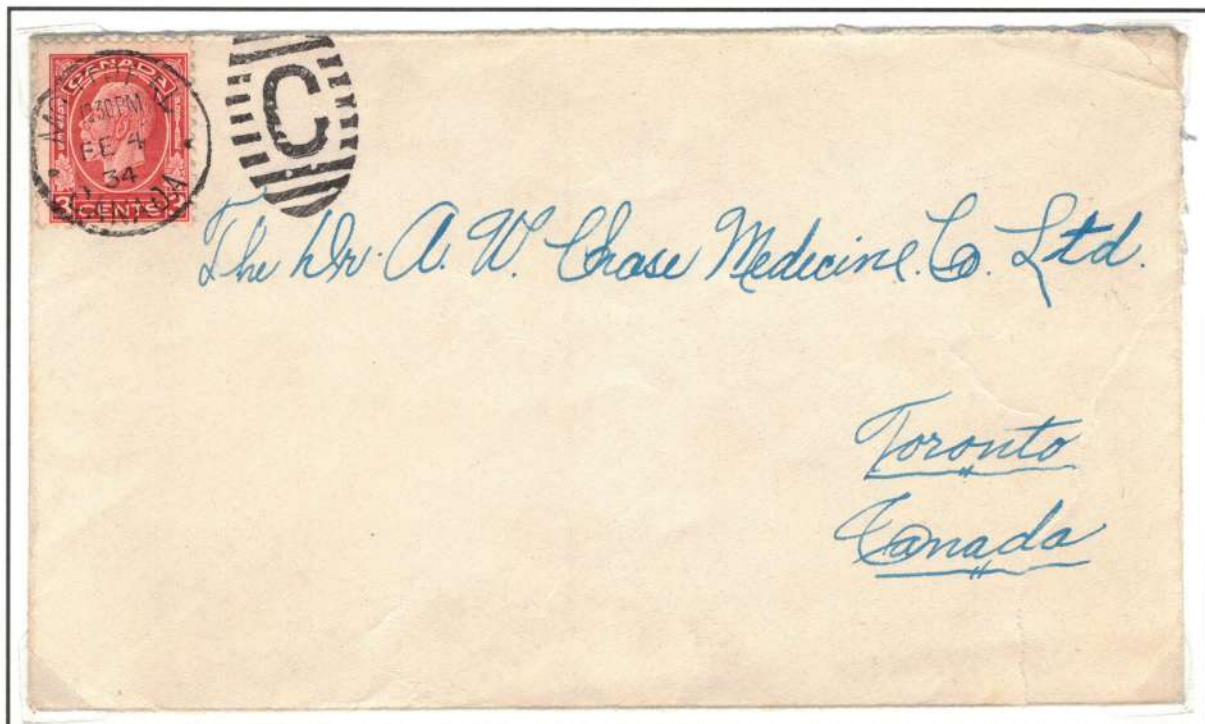 CANADA
MONTREAL
10 30 PM
FE 4
34
CANADA
3 CENTS 3
C
The Dr. A. W. Chase Medecine. Co. Ltd.
Toronto
Canada